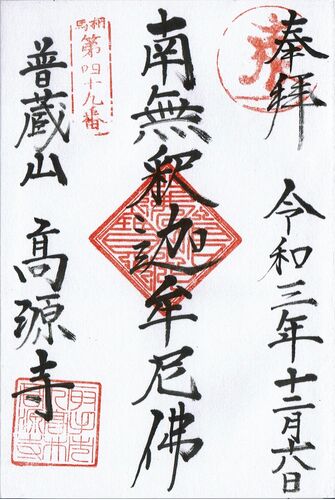 奉拝
令和三年十二月六日
南無釈迦牟尼佛
相馬
第四十九番
普蔵山 高源寺